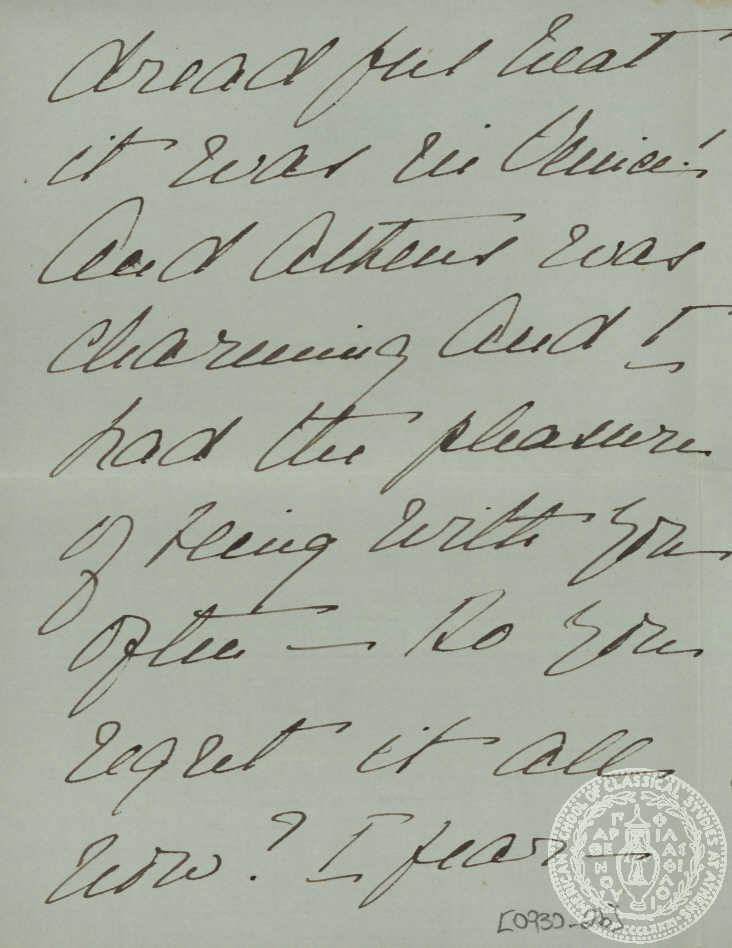 dreadful heat
it was in Venice!
And Athens was
charming and I
had the pleasure
of being with you
often — Do you
regret it all
now? I fear —
AMERICAN SCHOOL OF CLASSICAL STUDIES AT ATHENS
[0930_2b]